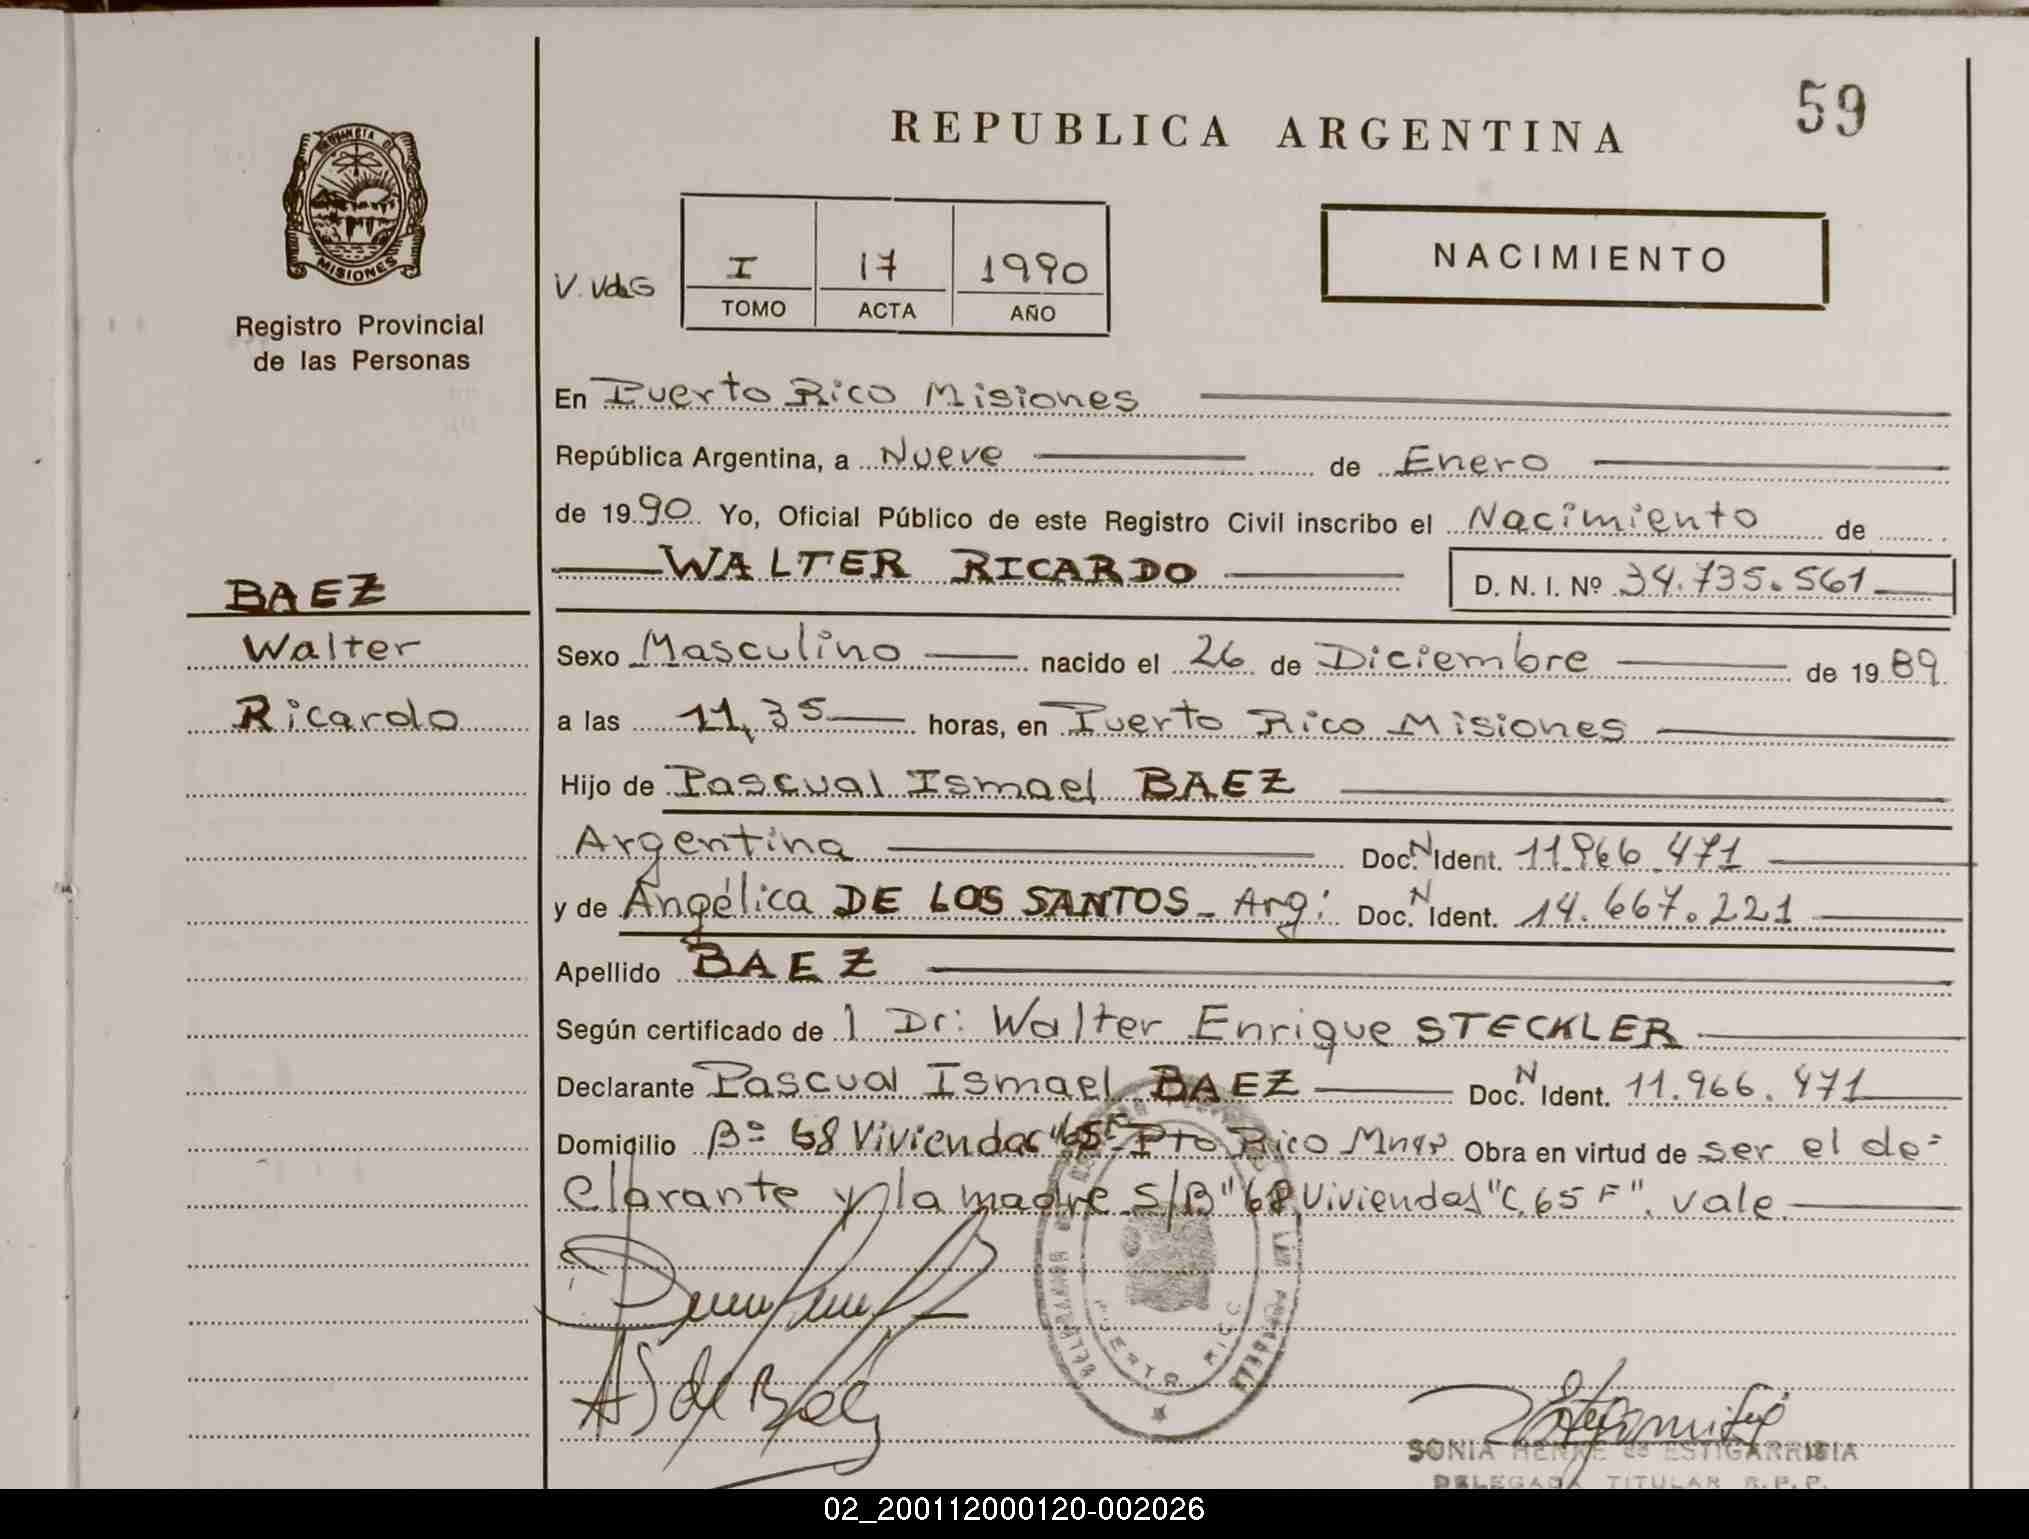 59
REPUBLICA ARGENTINA
PROVINCIA DE
MISIONES
Registro Provincial
de las Personas
I 17 1990
TOMO ACTA AÑO
NACIMIENTO
En Puerto Rico Misiones
República Argentina, a Nueve de Enero
de 1990 Yo, Oficial Público de este Registro Civil inscribo el Nacimiento de
WALTER RICARDO D. N. I. Nº 34.735.561
BAEZ
Walter
Ricardo
Sexo Masculino nacido el 26 de Diciembre de 1989
a las 11,35 horas, en Puerto Rico Misiones
Hijo de Pascual Ismael BAEZ
Argentina Doc. N Ident. 11.966.471
y de Angélica DE LOS SANTOS - Arg: Doc. N Ident. 14.667.221
Apellido BAEZ
Según certificado de l Dr: Walter Enrique STECKLER
Declarante Pascual Ismael BAEZ Doc. N Ident. 11.966.471
Domicilio Bº 68 Viviendas "65F" Pto Rico Mnes Obra en virtud de ser el de=
clarante y la madre S/B "68 Viviendas" C. 65 F". Vale
PUERTO RICO
SONIA HENKE de ESTIGARRIBIA
DELEGADA TITULAR R.P.P.
02_200112000120-002026